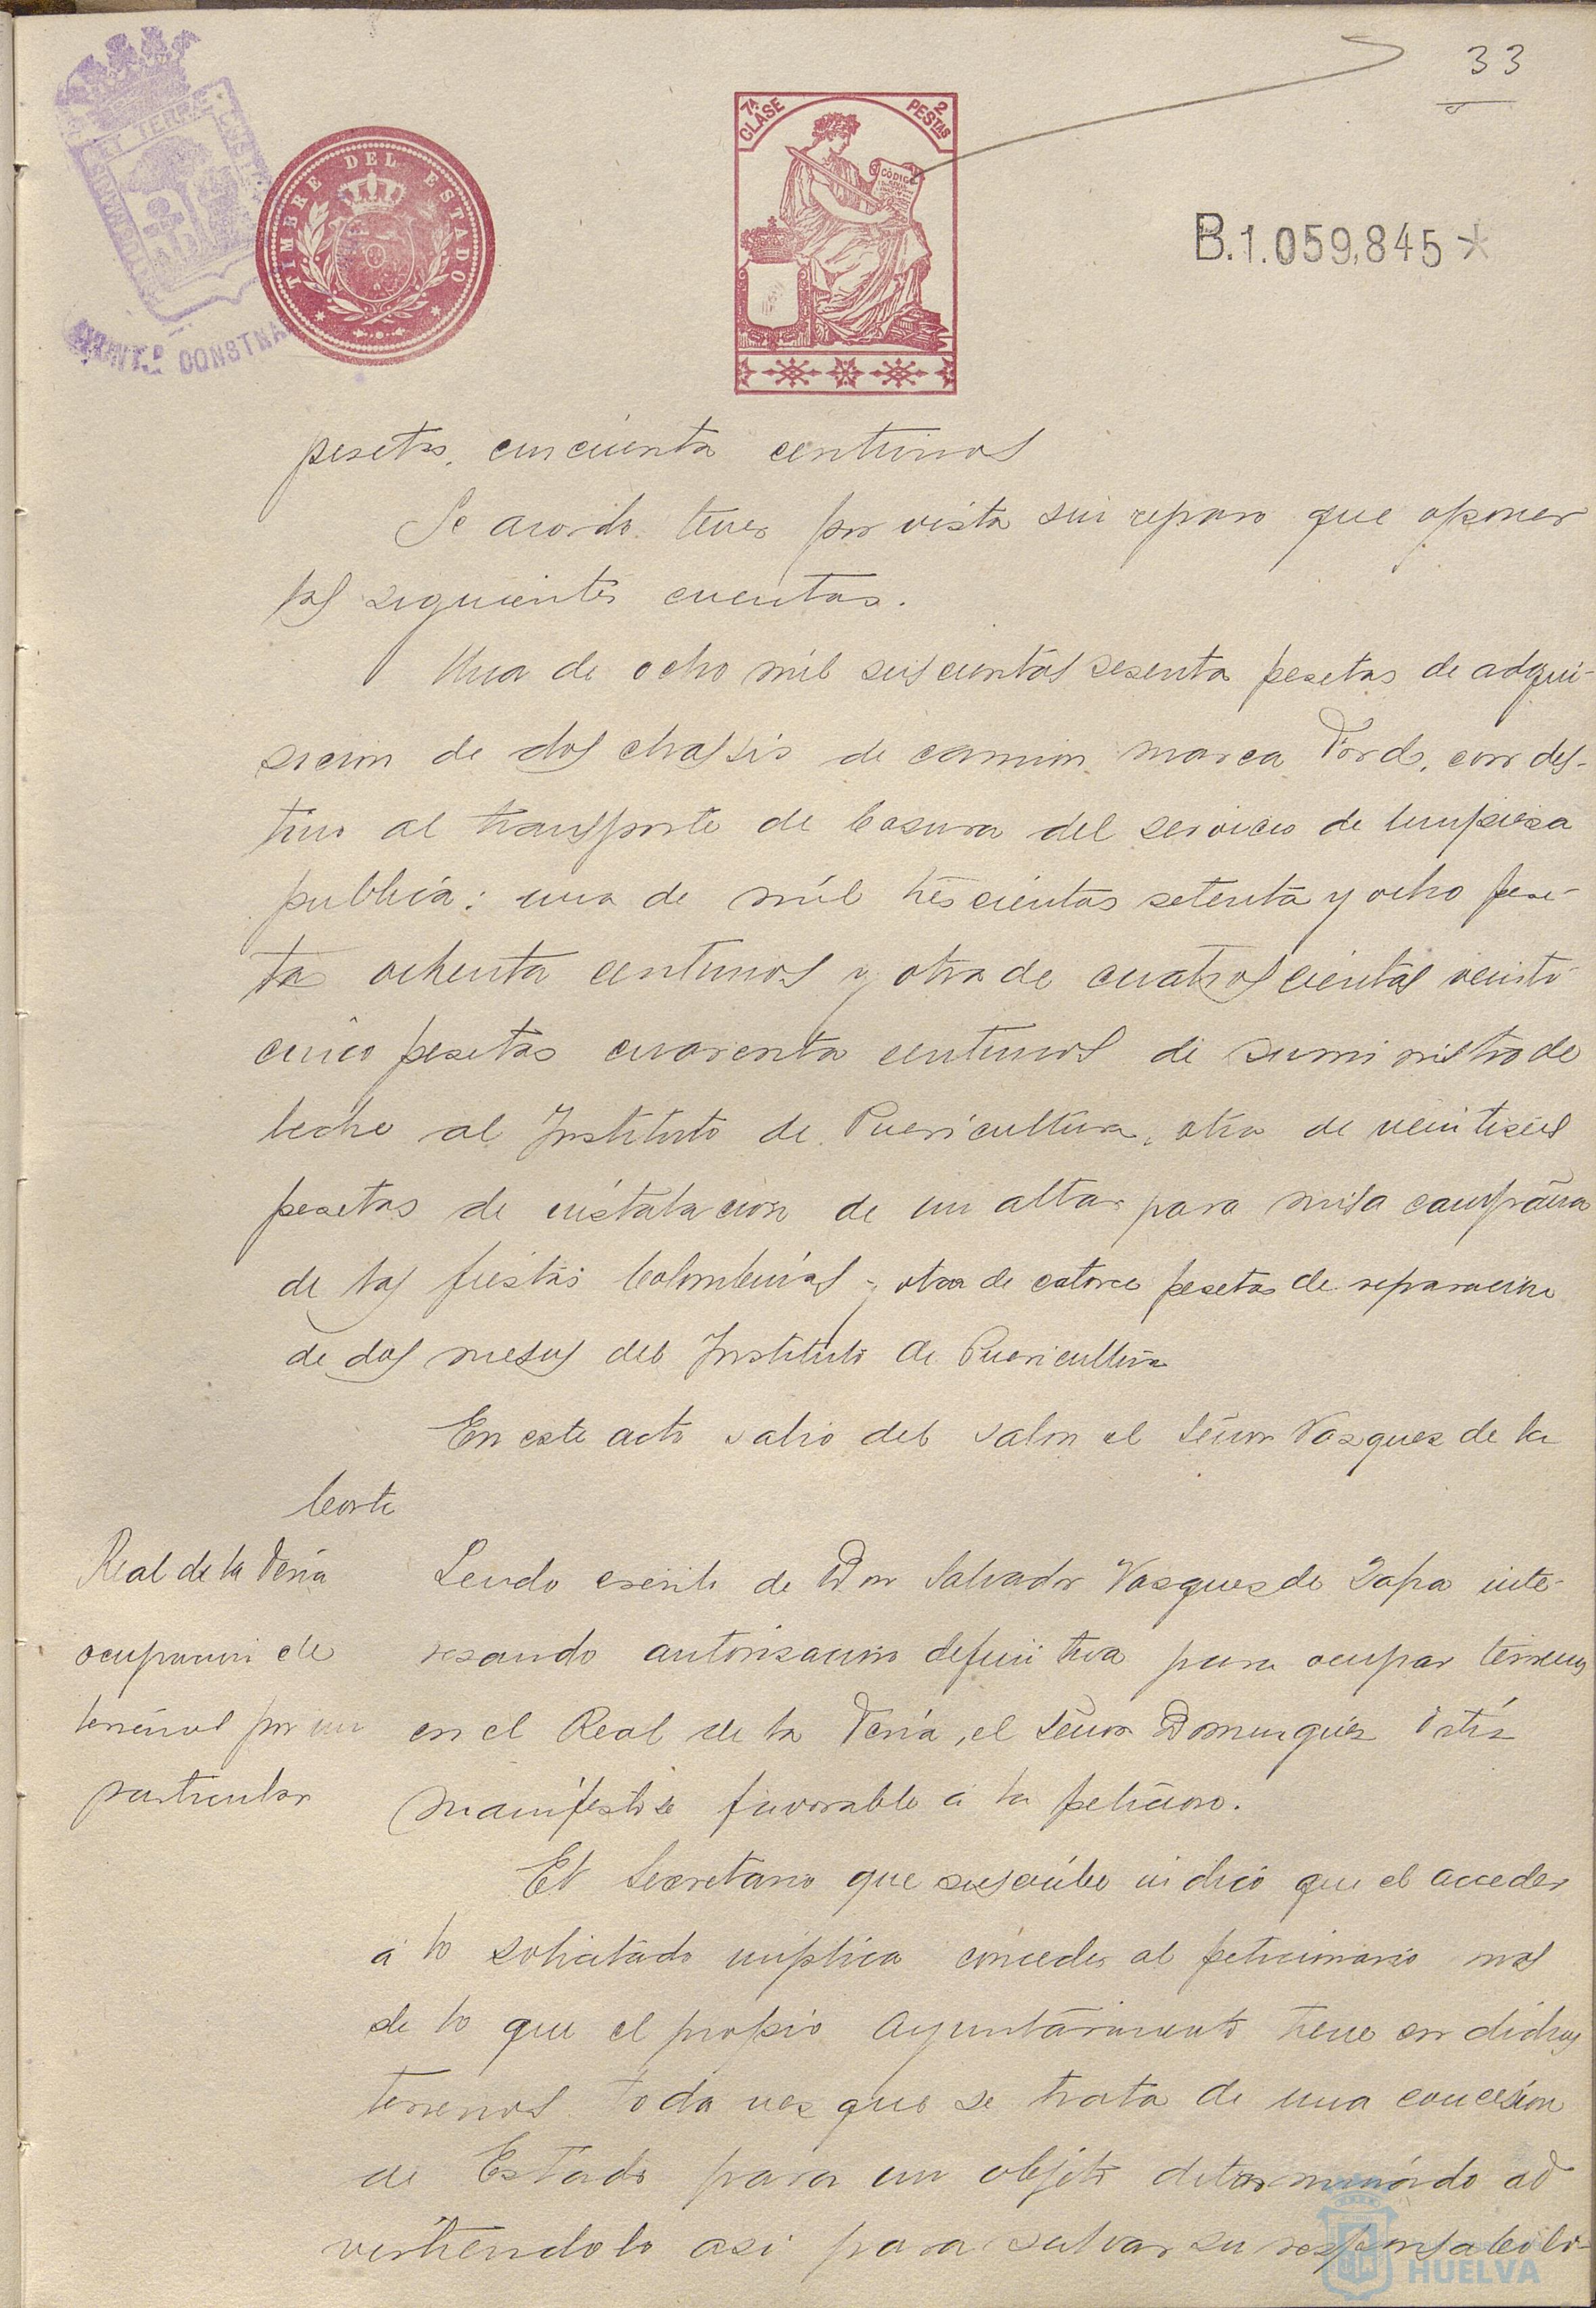 33
PORTUS MARIS ET TERRE CUSTODIA
AYUNT.º CONSTNAL
TIMBRE DEL ESTADO
7ª CLASE
2 PESTAS
CÓDIGO
B.1.059,845*
pesetas, cincuenta centimos
Se acordo tener por vista sin reparo que oponer
las siguientes cuentas.
Una de ocho mil seiscientas sesenta pesetas de adqui-
sicion de dos chassis de camion marca Ford, con des-
tino al transporte de basura del servicio de limpieza
publica: una de mil trescientas setenta y ocho pese-
tas ochenta centimos y otra de cuatroscientas veinti-
cinco pesetas cuarenta centimos de suministro de
leche al Instituto de Puericultura, otra de veintiseis
pesetas de instalacion de un altar para misa campaña
de las fiestas Colombinas y otra de catorce pesetas de reparacion
de dos mesas del Instituto de Puericultura
En este acto salio del salon el Señor Vazquez de la
Corte
Real de la Feria
ocupacion de
terrenos por un
particular
Leido escrito de Don Salvador Vazquez de Zapa inte-
resando autorizacion definitiva para ocupar terrenos
en el Real de la Feria, el Señor Dominguez Ortiz
manifestose favorable a la peticion.
El Secretario que suscribe indicó que el acceder
a lo solicitado implica conceder al peticionario mas
de lo que el propio Ayuntamiento tiene en dichos
terrenos toda vez que se trata de una concesion
de Estado para un objeto determinado ad
virtiendolo asi para salvar su responsabili-
HUELVA